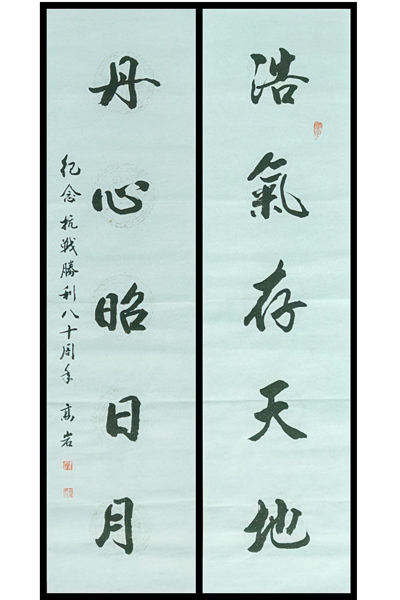 浩氣存天地
丹心昭日月
紀念抗戰勝利八十周年 高岩